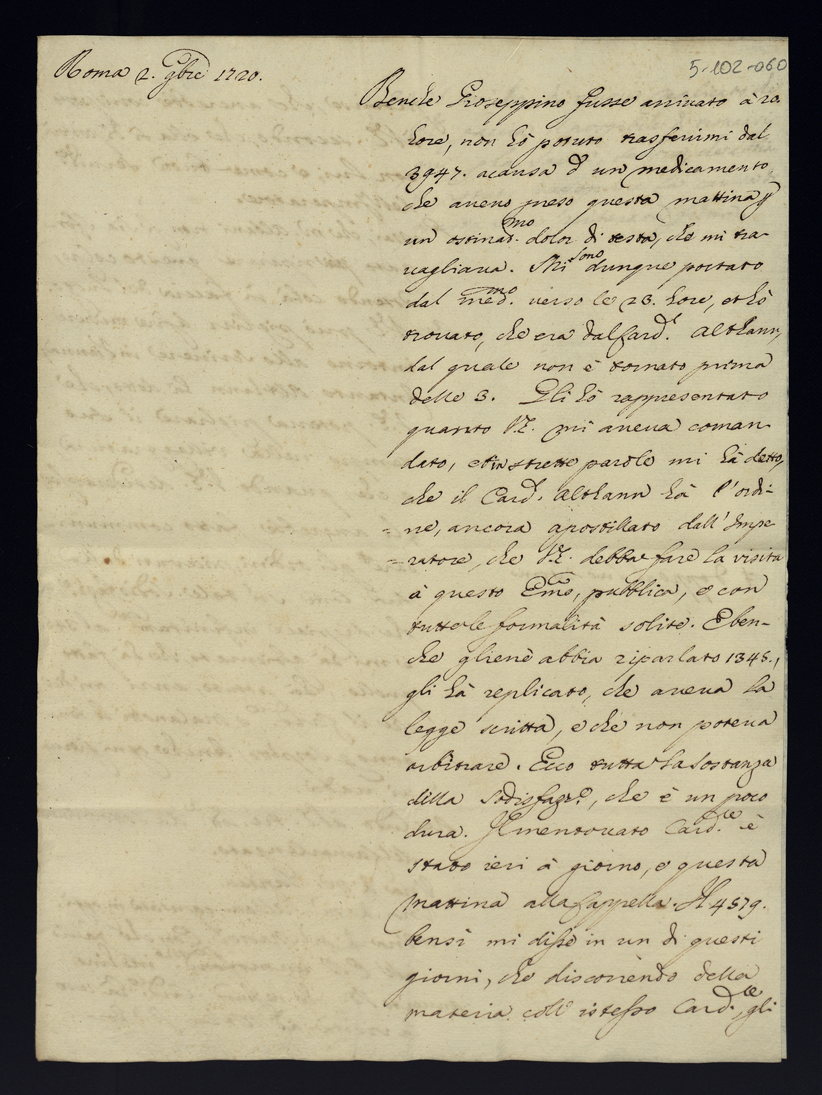 5-102-060
Roma 2. 9bre 1720.
Benche Gioseppino fusse arrivato à 20.
hore, non hò potuto trasferirmi dal
3947. acausa d'un medicamento,
che avevo preso questa mattina p
un ostinatmo dolor di testa, che mi tra-
vagliava. Mi sono dunque portato
dal medmo. verso le 23. hore, et hò
trovato, che era dal Cardl. Althann,
dal quale non è tornato prima
delle 3. Gli hò rappresentato
quanto V.E. mi aveva coman-
dato, et in strette parole mi hà detto,
che il Card. Althann hà l'ordi-
=ne, ancora apostillato dall'Impe
=ratore, che V.E. debba fare la visita
à questo Emo, pubblica, e con
tutte le formalità solite. E ben-
che gliene abbia riparlato 1345.,
gli hà replicato, che aveva la
legge scritta, e che non poteva
arbitrare. Ecco tutta la sostanza
della sodisfazne, che è un poco
dura. Il mentovato Cardle è
stato ieri à giorno, e questa
mattina alla Cappella. Il 4579.
bensì mi disse in un di questi
giorni, che discorrendo della
materia coll'istesso Cardle, gli